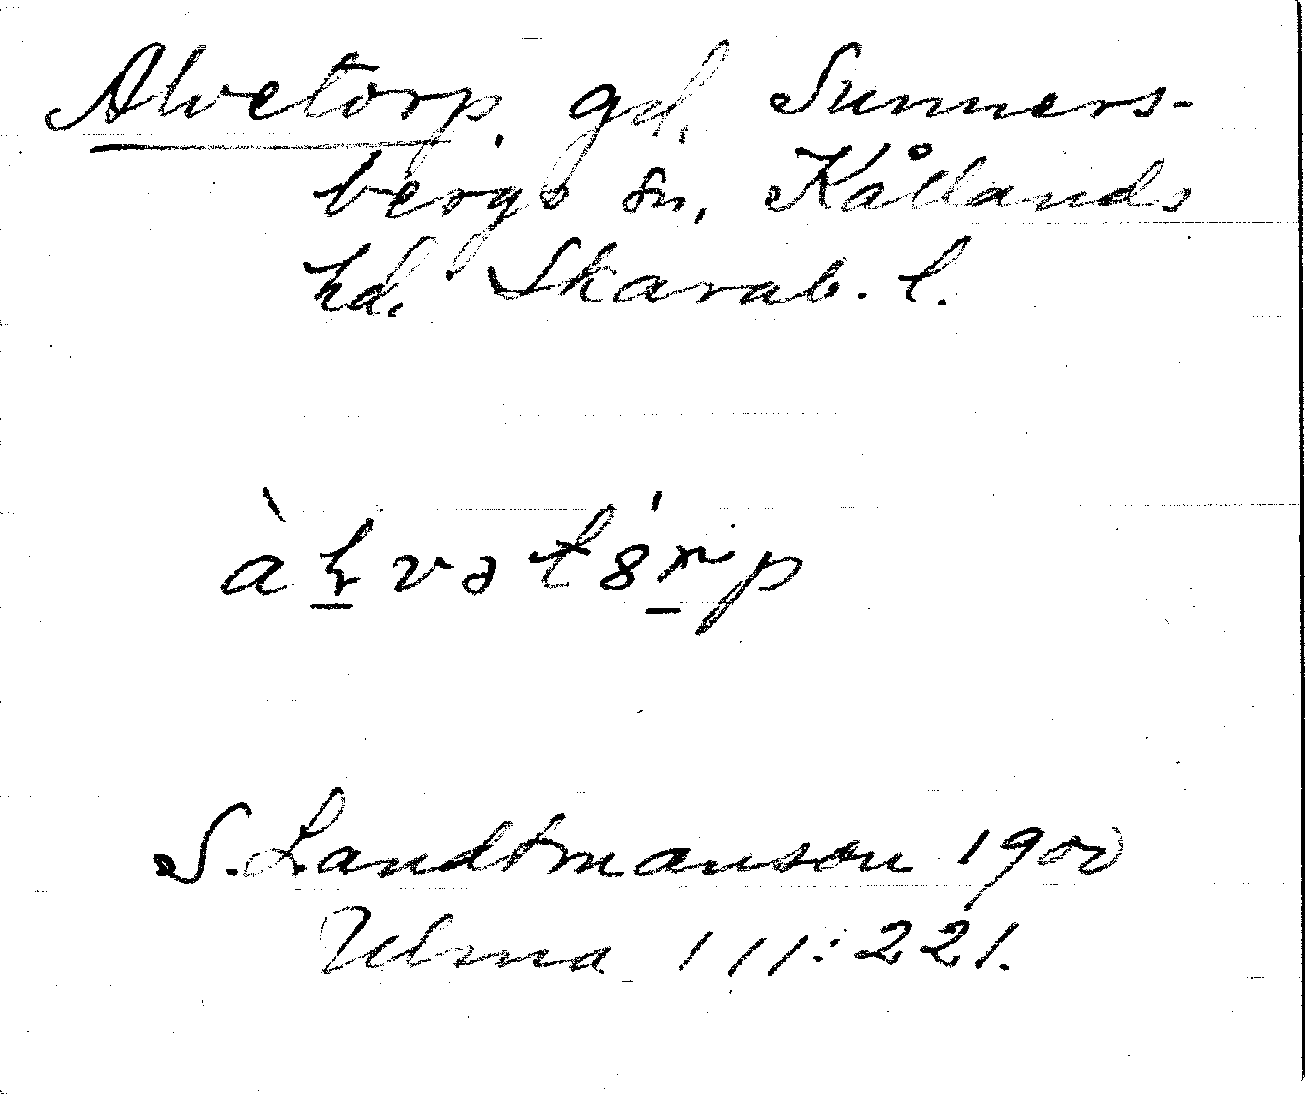 Alvetorp, gd, Sunners-
bergs sn, Kållands
hd. Skarab. l.
S. Landtmanson 1900
Ulma 111:221.